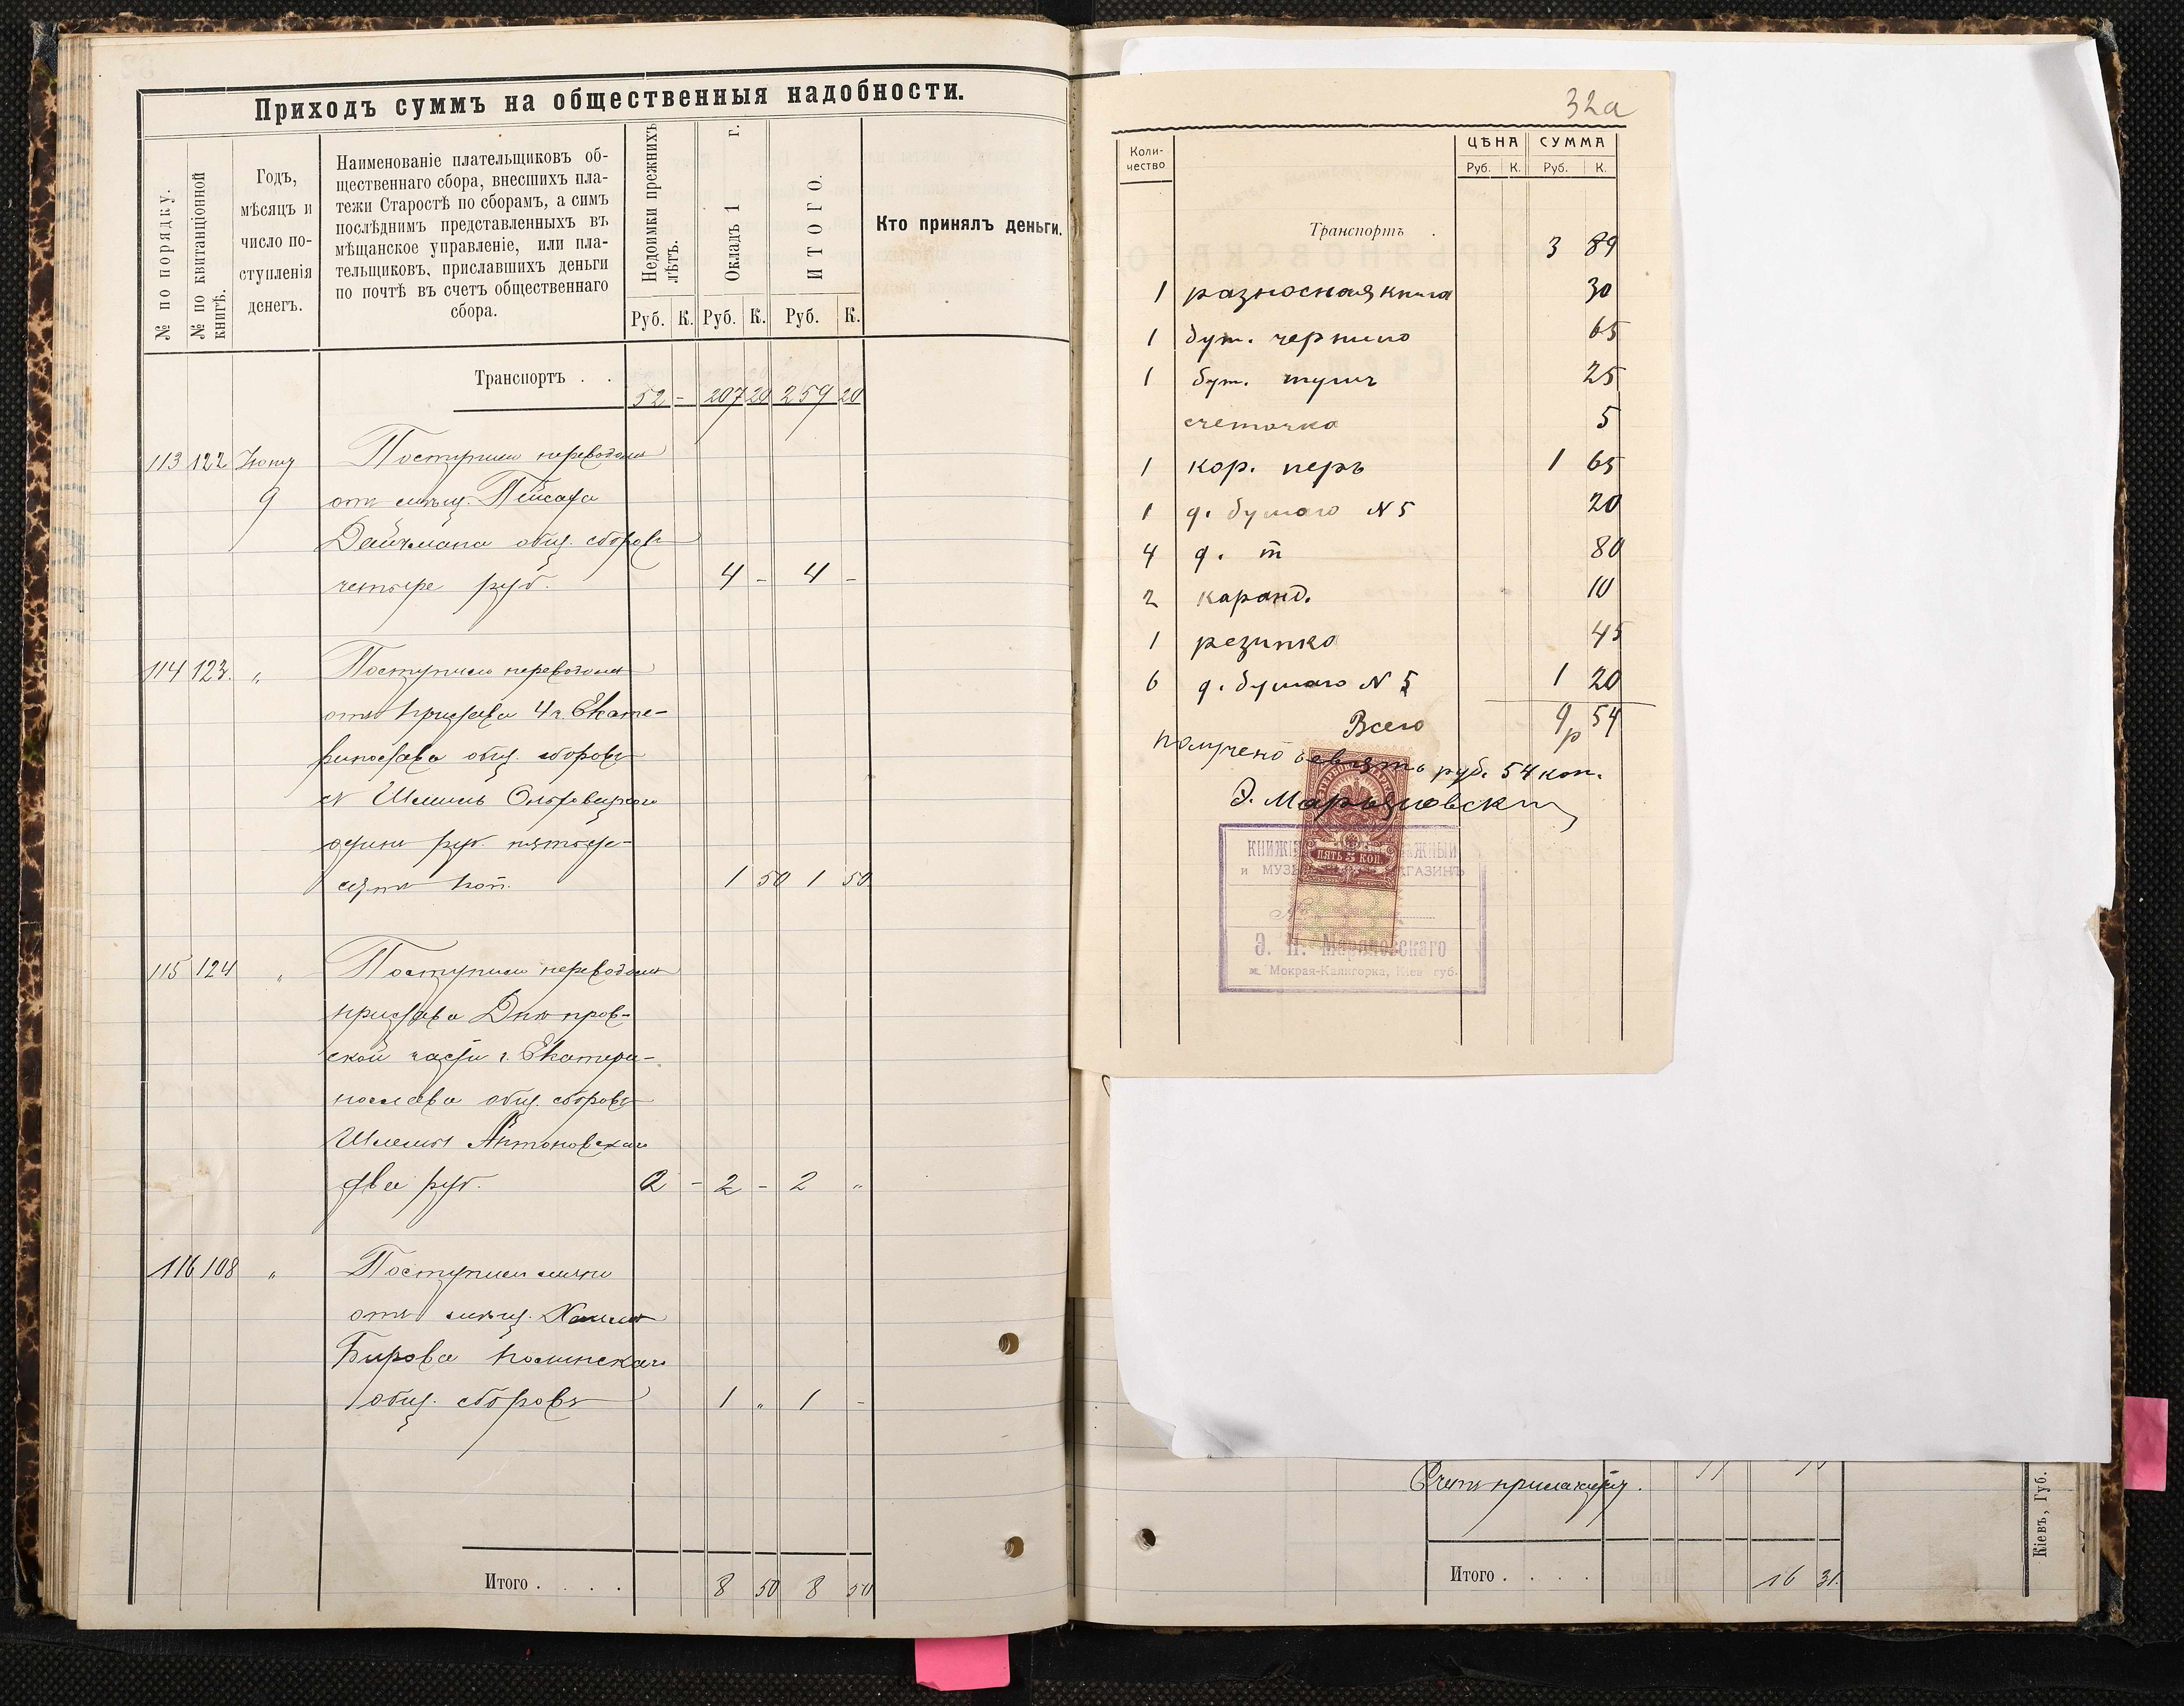 Приходъ суммъ на общественныя надобности.
№ по порядку.
№ по квитанціонной книгѣ.
Годъ,
мѣсяцъ и
число по-
ступленія
денегъ.
Наименованіе плательщиковъ об-
щественнаго сбора, внесшихъ пла-
тежи Старостѣ по сборамъ, а симъ
послѣднимъ представленныхъ въ
мѣщанское управленіе, или пла-
тельщиковъ, приславшихъ деньги
по почтѣ въ счетъ общественнаго
сбора.
Недоимки прежнихъ лѣтъ.
Окладъ 1 г.
ИТОГО.
Кто принялъ деньги.
Руб. К. Руб. К. Руб. К.
Транспортъ . . 52 - 207 20 259 20
113 122 Іюня Поступило переводомъ
9 отъ мѣщ. Пейсаха
Дейчмана общ. сборовъ
четыре руб. 4 - 4 -
114 123. " Поступило переводомъ
отъ пристава 4 ч. Екате-
ринослава общ. сборовъ
съ Шлемы
одинъ руб. пятьде-
сятъ коп. 1 50 1 50
115 124 " Поступило переводомъ
пристава Днѣпров-
ской части г. Екатери-
нослава общ. сборовъ
Шлемы Антоновскаго
два руб. 2 - 2 - 2 "
116 108 " Поступило
отъ мѣщ.
общ. сборовъ 1 " 1 -
Итого . . . . 8 50 8 50
32а
Коли-
чество
ЦѢНА СУММА
Руб. К. Руб. К.
Транспортъ . 3 89
1 разносная книга 30
1 бут. чернило 65
1 бут. тушь 25
счеточка 5
1 кор. перъ 1 65
1 д. бумаго N 5 20
4 д. т 80
2 каранд. 10
1 резинко 45
6 д. бумаго N 5 1 20
Всего 9р 54
получено девять руб. 54 коп.
Э. Марьяновский
ПЯТЬ 5 КОП.
Э. Н. Марьяновскаго
м. Мокрая-Калигорка, Кіев. губ.
Счетъ прилагаю.
Итого . . . . 16 31.
Кіевъ, Губ.